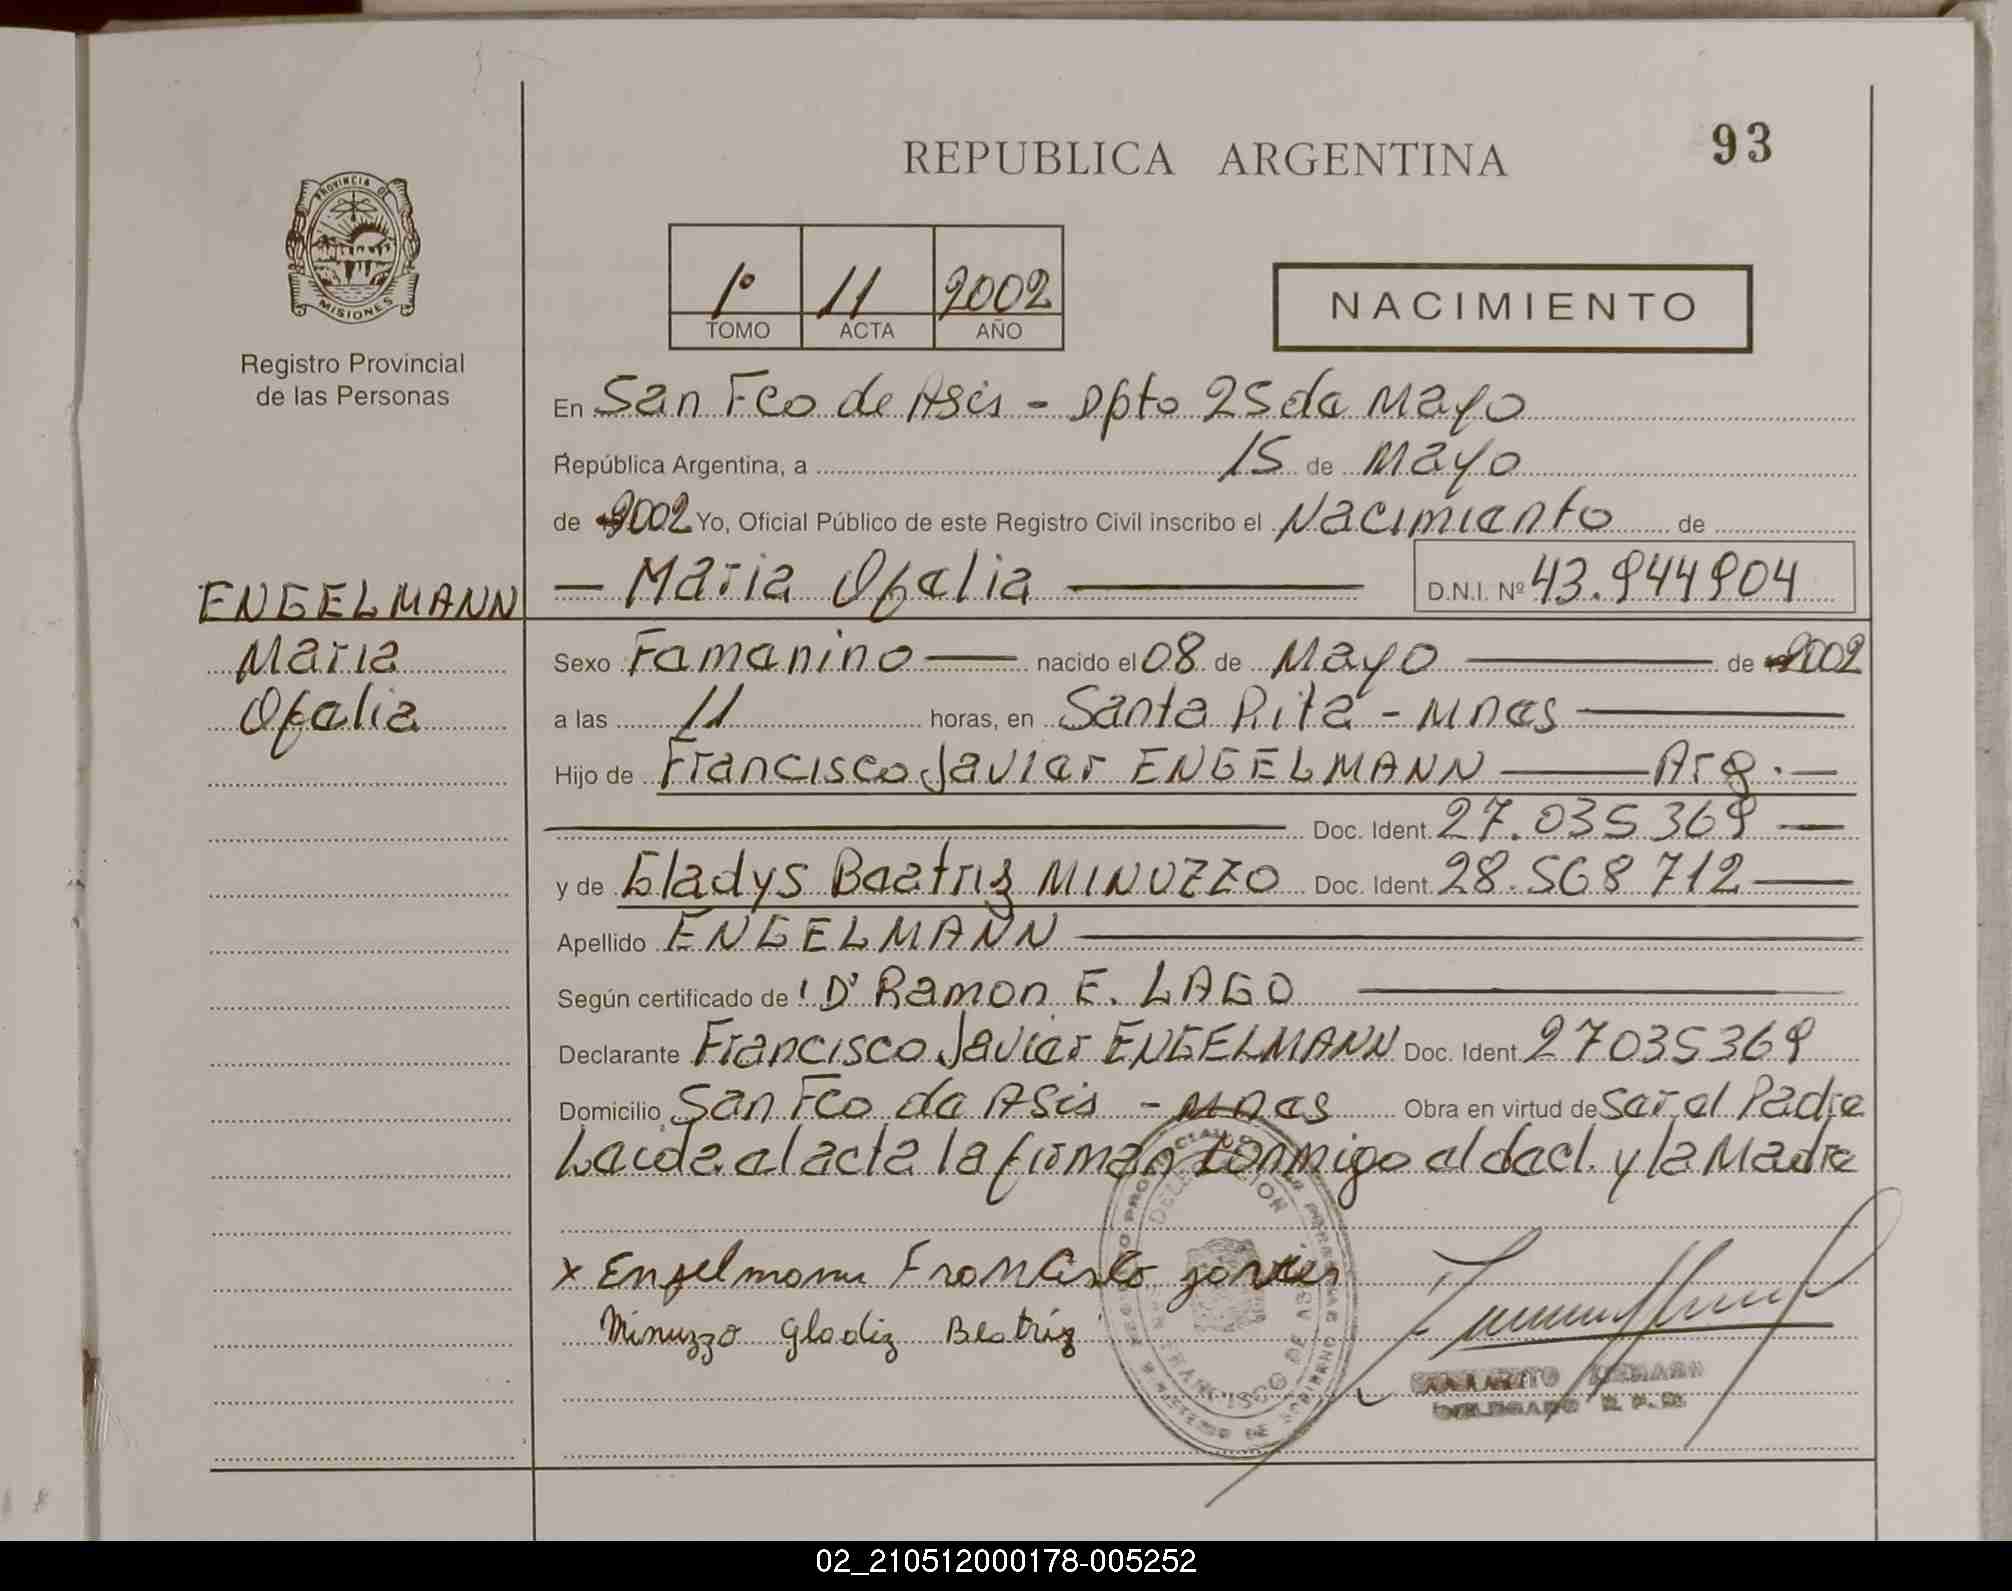 93
REPUBLICA ARGENTINA
PROVINCIA DE
MISIONES
Registro Provincial
de las Personas
1º 11 2002
TOMO ACTA AÑO
NACIMIENTO
En San Fco de Asis - Dpto 25 de Mayo
República Argentina, a 15 de Mayo
de 2002 Yo, Oficial Público de este Registro Civil inscribo el Nacimiento de
ENGELMANN
Maria
Ofelia
Maria Ofelia D.N.I. Nº 43.944904
Sexo Femenino nacido el 08 de Mayo de 2002
a las 11 horas, en Santa Rita - Mnes
Hijo de Francisco Javier ENGELMANN Arg.
Doc. Ident. 27.035369
y de Gladys Beatriz MINUZZO Doc. Ident. 28.568712
Apellido ENGELMANN
Según certificado de Dr Ramon E. LAGO
Declarante Francisco Javier ENGELMANN Doc. Ident. 27035369
Domicilio San Fco de Asis - Mnes Obra en virtud de ser el Padre
Leida el acta la firman conmigo el decl. y la Madre
x Engelmann Francisco Javier
Minuzzo Gladiz Beatriz
DELEGACION
SAN FRANCISCO DE ASIS
DELEGADO R. P. P.
02_210512000178-005252